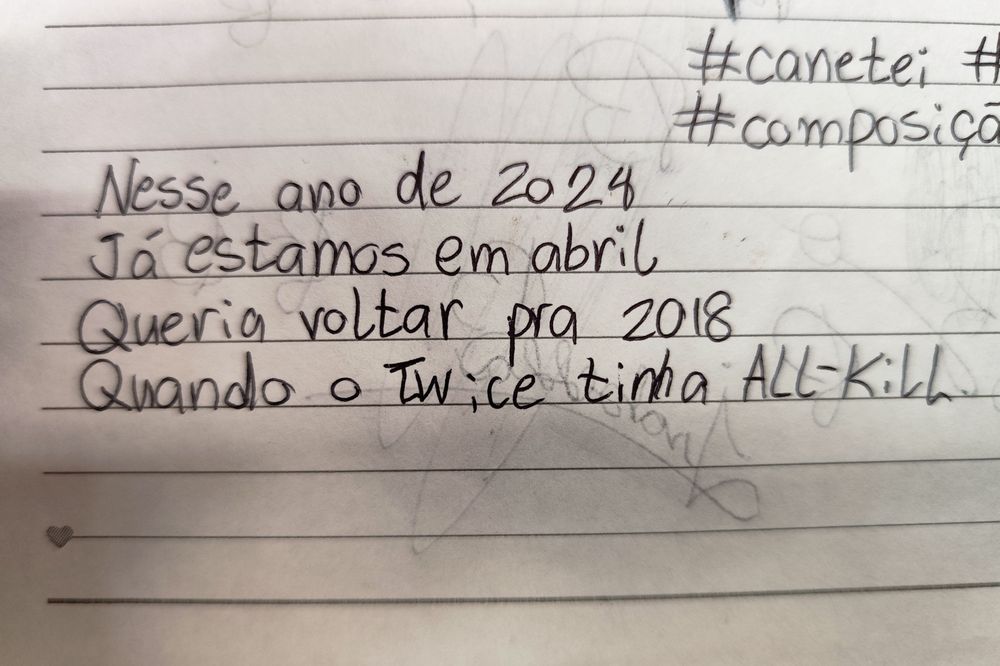 #canetei #
#composiçã
Nesse ano de 2024
Já estamos em abril
Queria voltar pra 2018
Quando o Twice tinha ALL-KiLL.